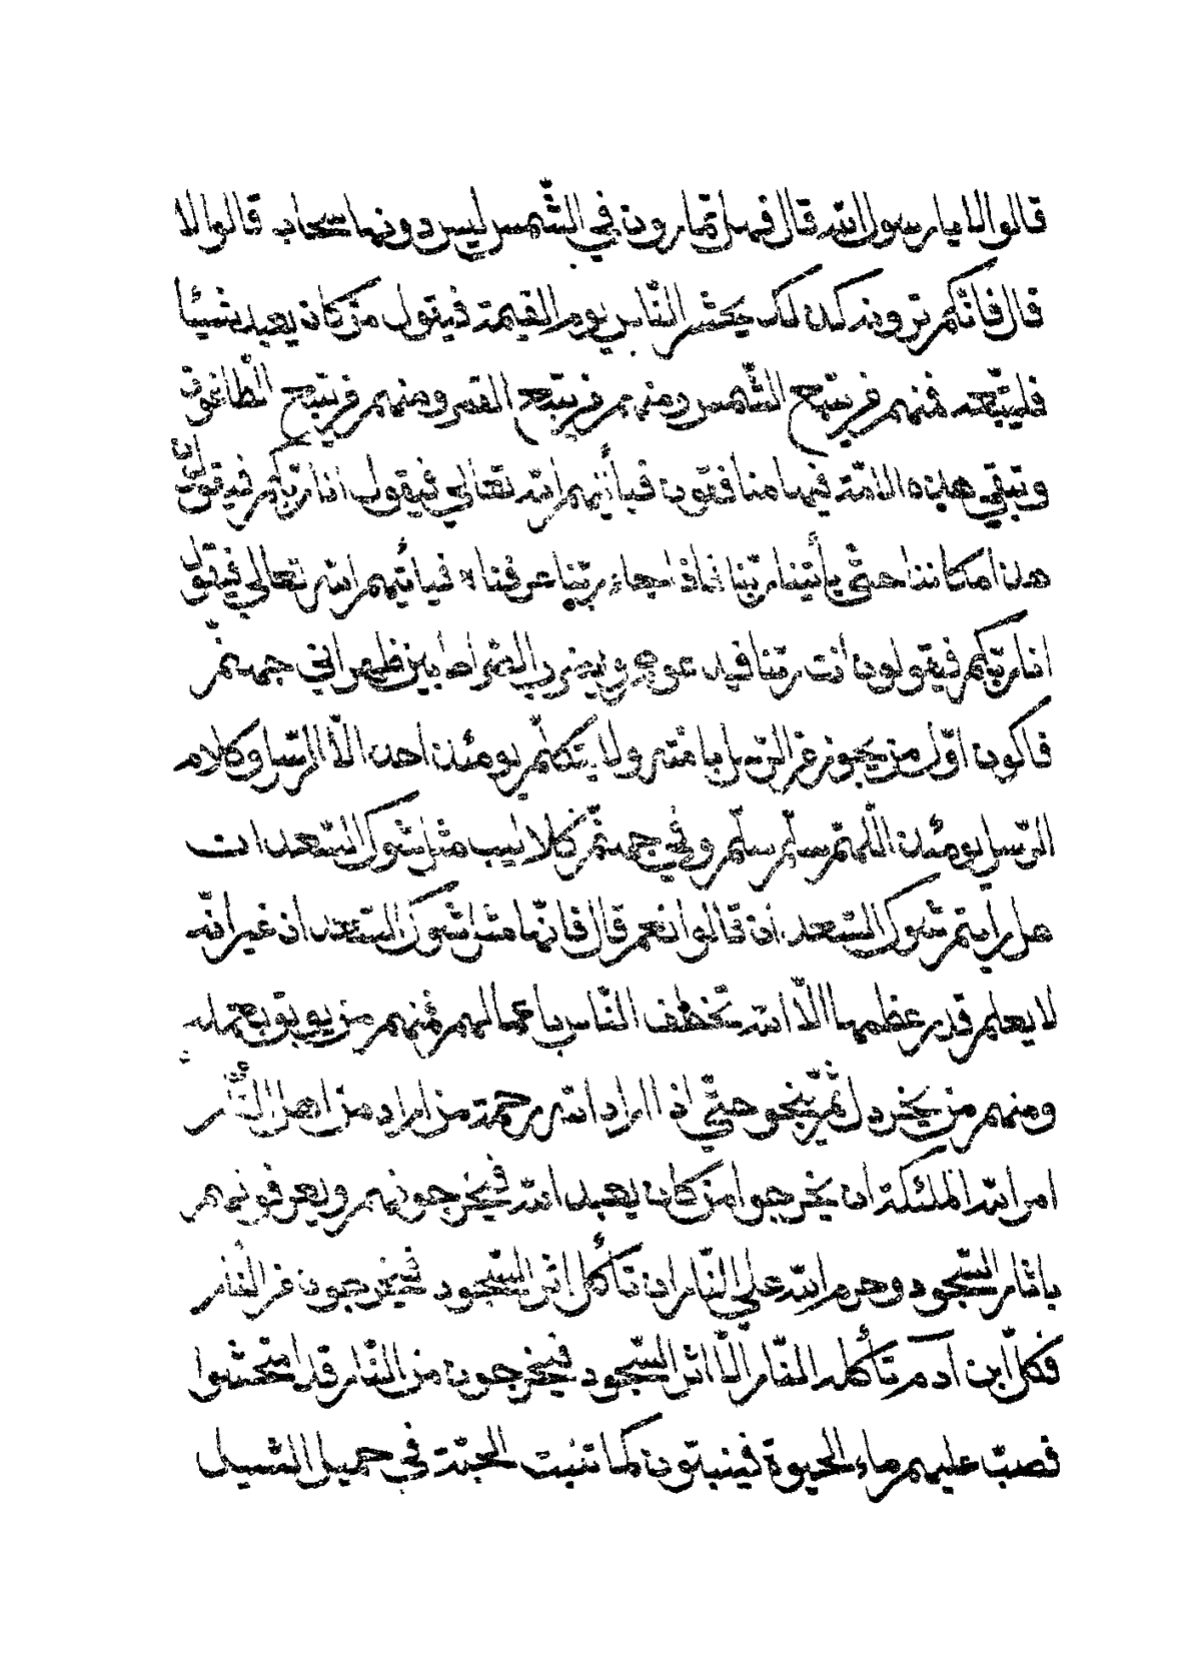 قالوا لا يا رسول الله قال فهل تمارون في الشّمس ليس دونها سحاب قالوا لا
قال فانّكم ترونه كذلك يحشر النّاس يوم القيمة فيقول من كان يعبد شيئا
فليتّبعه فمنهم من يتبع الشّمس ومنهم من يتبع القمر ومنهم من يتبع الطّاغوت
وتبقي هذه الامّة فيها منافقون فيأتيهم الله تعالي فيقول انا ربّكم فيقولون
هذا مكاننا حتّي يأتينا ربّنا فاذا جاء ربّنا عرفناه فيأتيهم الله تعالي فيقول
انا ربّكم فيقولون انت ربّنا فيدعوهم ويضرب الصّراط بين ظهراني جهنّم
فاكون اوّل من يجوز من الرّسل بامّته ولا يتكلّم يومئذ احد الّا الرّسل وكلام
الرّسل يومئذ اللّهمّ سلّم سلّم وفي جهنّم كلاليب مثل شوك السّعدان
هل رايتم شوك السّعدان قالوا نعم قال فانّها مثل شوك السّعدان غير انّه
لا يعلم قدر عظمها الّا الله تخطف النّاس باعمالهم فمنهم من يوبق بعمله
ومنهم من يخردل ثمّ ينجو حتّي اذا اراد الله رحمة من اراد من اهل النّار
امر الله الملئكة ان يخرجوا من كان يعبد الله فيخرجونهم ويعرفونهم
باثار السّجود وحرم الله علي النّار ان تأكل اثر السّجود فيخرجون من النّار
فكلّ ابن آدم تأكله النّار الّا اثر السّجود فيخرجون من النّار قد امتحشوا
فصبّ عليهم ماء الحيوة فينبتون كما تنبت الحبّة في حميل السّيل